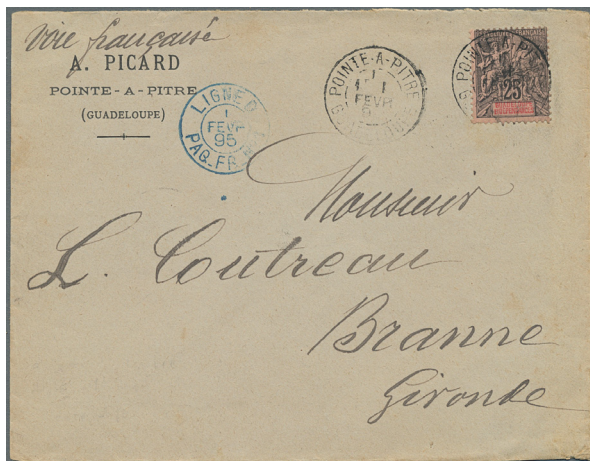 Voie française
A. PICARD
POINTE-A-PITRE
(GUADELOUPE)
LIGNE D
1
FEVR
95
PAQ. FR.
POINTE-A-PITRE
1
FEVR
POINTE-A-PITRE
25
Monsieur
L. Coutreau
Branne
Gironde